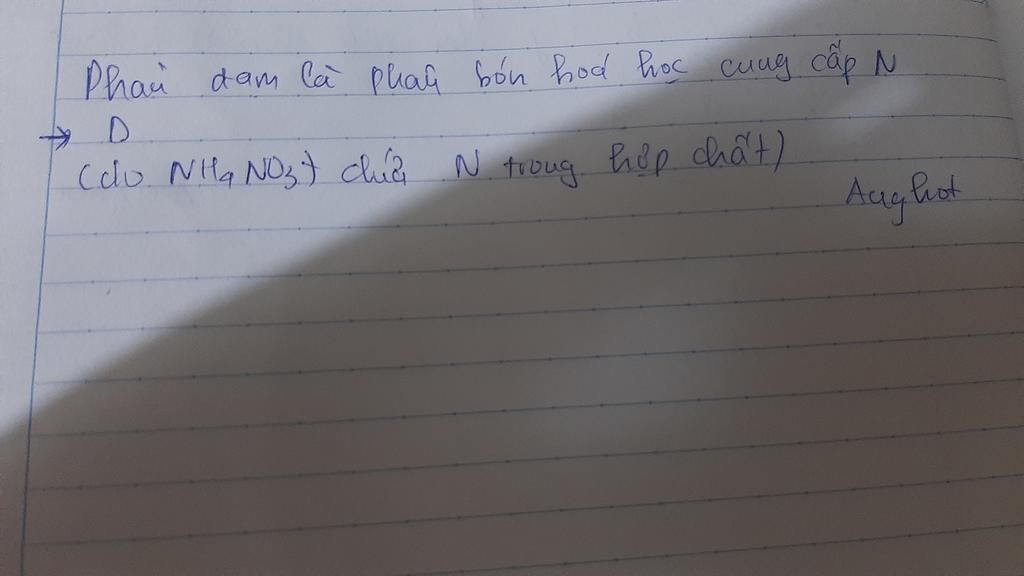 Phân đạm là phân bón hoá học cung cấp N
→ D
(do NH4NO3 chứa N trong hợp chất)